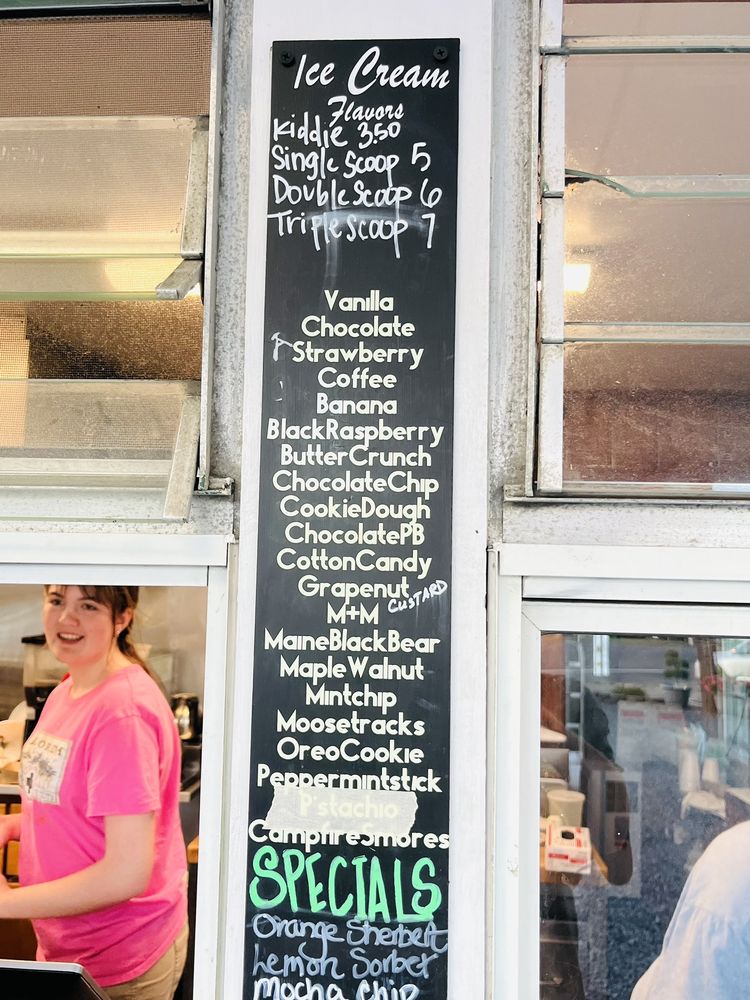 Ice Cream
Flavors
Kiddie 3.50
Single Scoop 5
Double Scoop 6
Triple Scoop 7
Vanilla
Chocolate
Strawberry
Coffee
Banana
BlackRaspberry
ButterCrunch
ChocolateChip
CookieDough
ChocolatePB
CottonCandy
Grapenut CUSTARD
M+M
MaineBlackBear
MapleWalnut
Mintchip
Moosetracks
OreoCookie
Peppermintstick
P'stachio
CampfireSmores
SPECIALS
Orange Sherbert
Lemon Sorbet
Mocha Chip